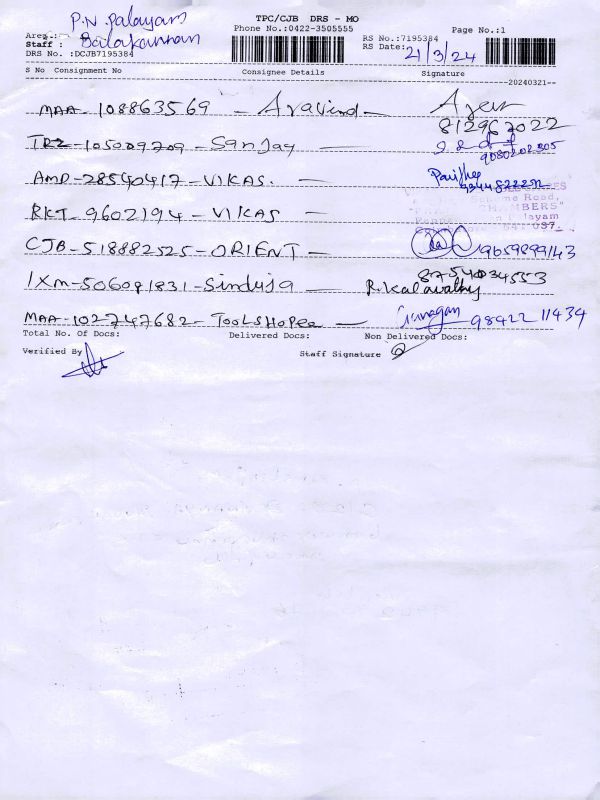 P.N. Palayam
TPC/CJB DRS - MO
Phone No.:0422-3505555
Page No.:1
Area:
Staff : Balakannan
RS No.:7195384
RS Date: 21/3/24
DRS No. :DCJB7195384
S No Consignment No Consignee Details Signature
20240321
MAA-108863569 - Aravind -
812967022
TRZ-105009709 - Sanjay -
9080202305
AMD-28540417 - VIKAS. -
RKT-9602194 - VIKAS -
CHAMBERS"
CJB-518882525 - ORIENT - 9659899143
IXM-506091831 - Sinduja - 8754034553
R.Kalavathy
MAA-102747682 - TOOLSHOPEE - 98422 11434
Total No. Of Docs: Delivered Docs: Non Delivered Docs:
Verified By Staff Signature